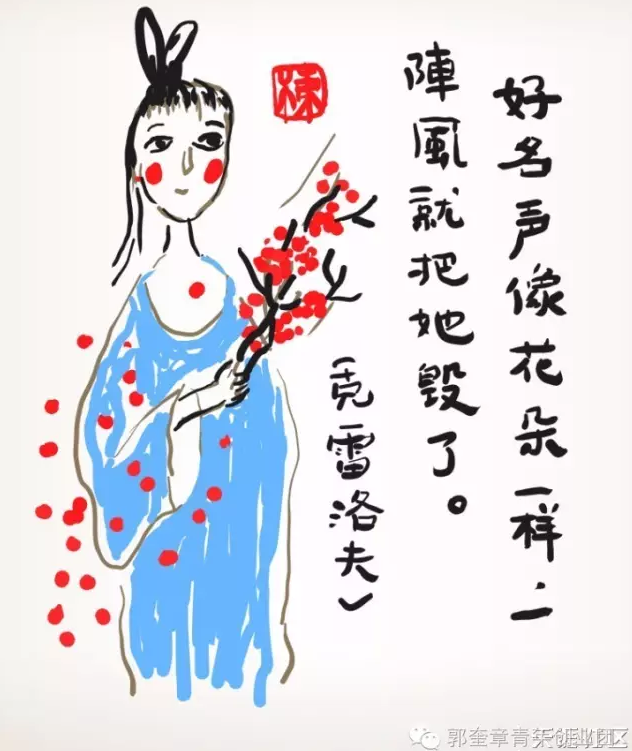 好名声像花朵一样,一
陣風就把她毀了。
(克雷洛夫)
棟
郭奎章青
天涯社区